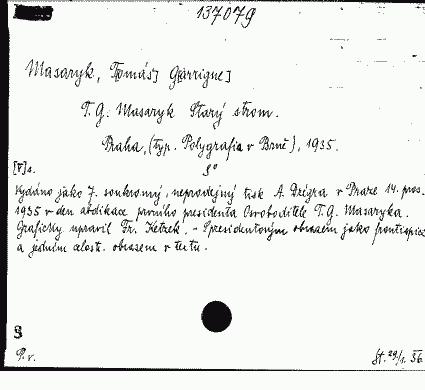 137079
Masaryk, T[omáš] G[arrigue]
T. G. Masaryk Starý strom.
Praha, (typ. Polygrafia v Brně), 1935.
[V] s. 8°
Vydáno jako 7. soukromý, neprodejný tisk A. Dzigra v Praze 14. pros.
1935 v den abdikace prvního presidenta Osvoboditele T. G. Masaryka.
Graficky upravil Fr. Ketzek. - S presidentovým obrazem jako frontispice
a jedním celostr. obrazem v textu.
P. v. St. 29/1. 36